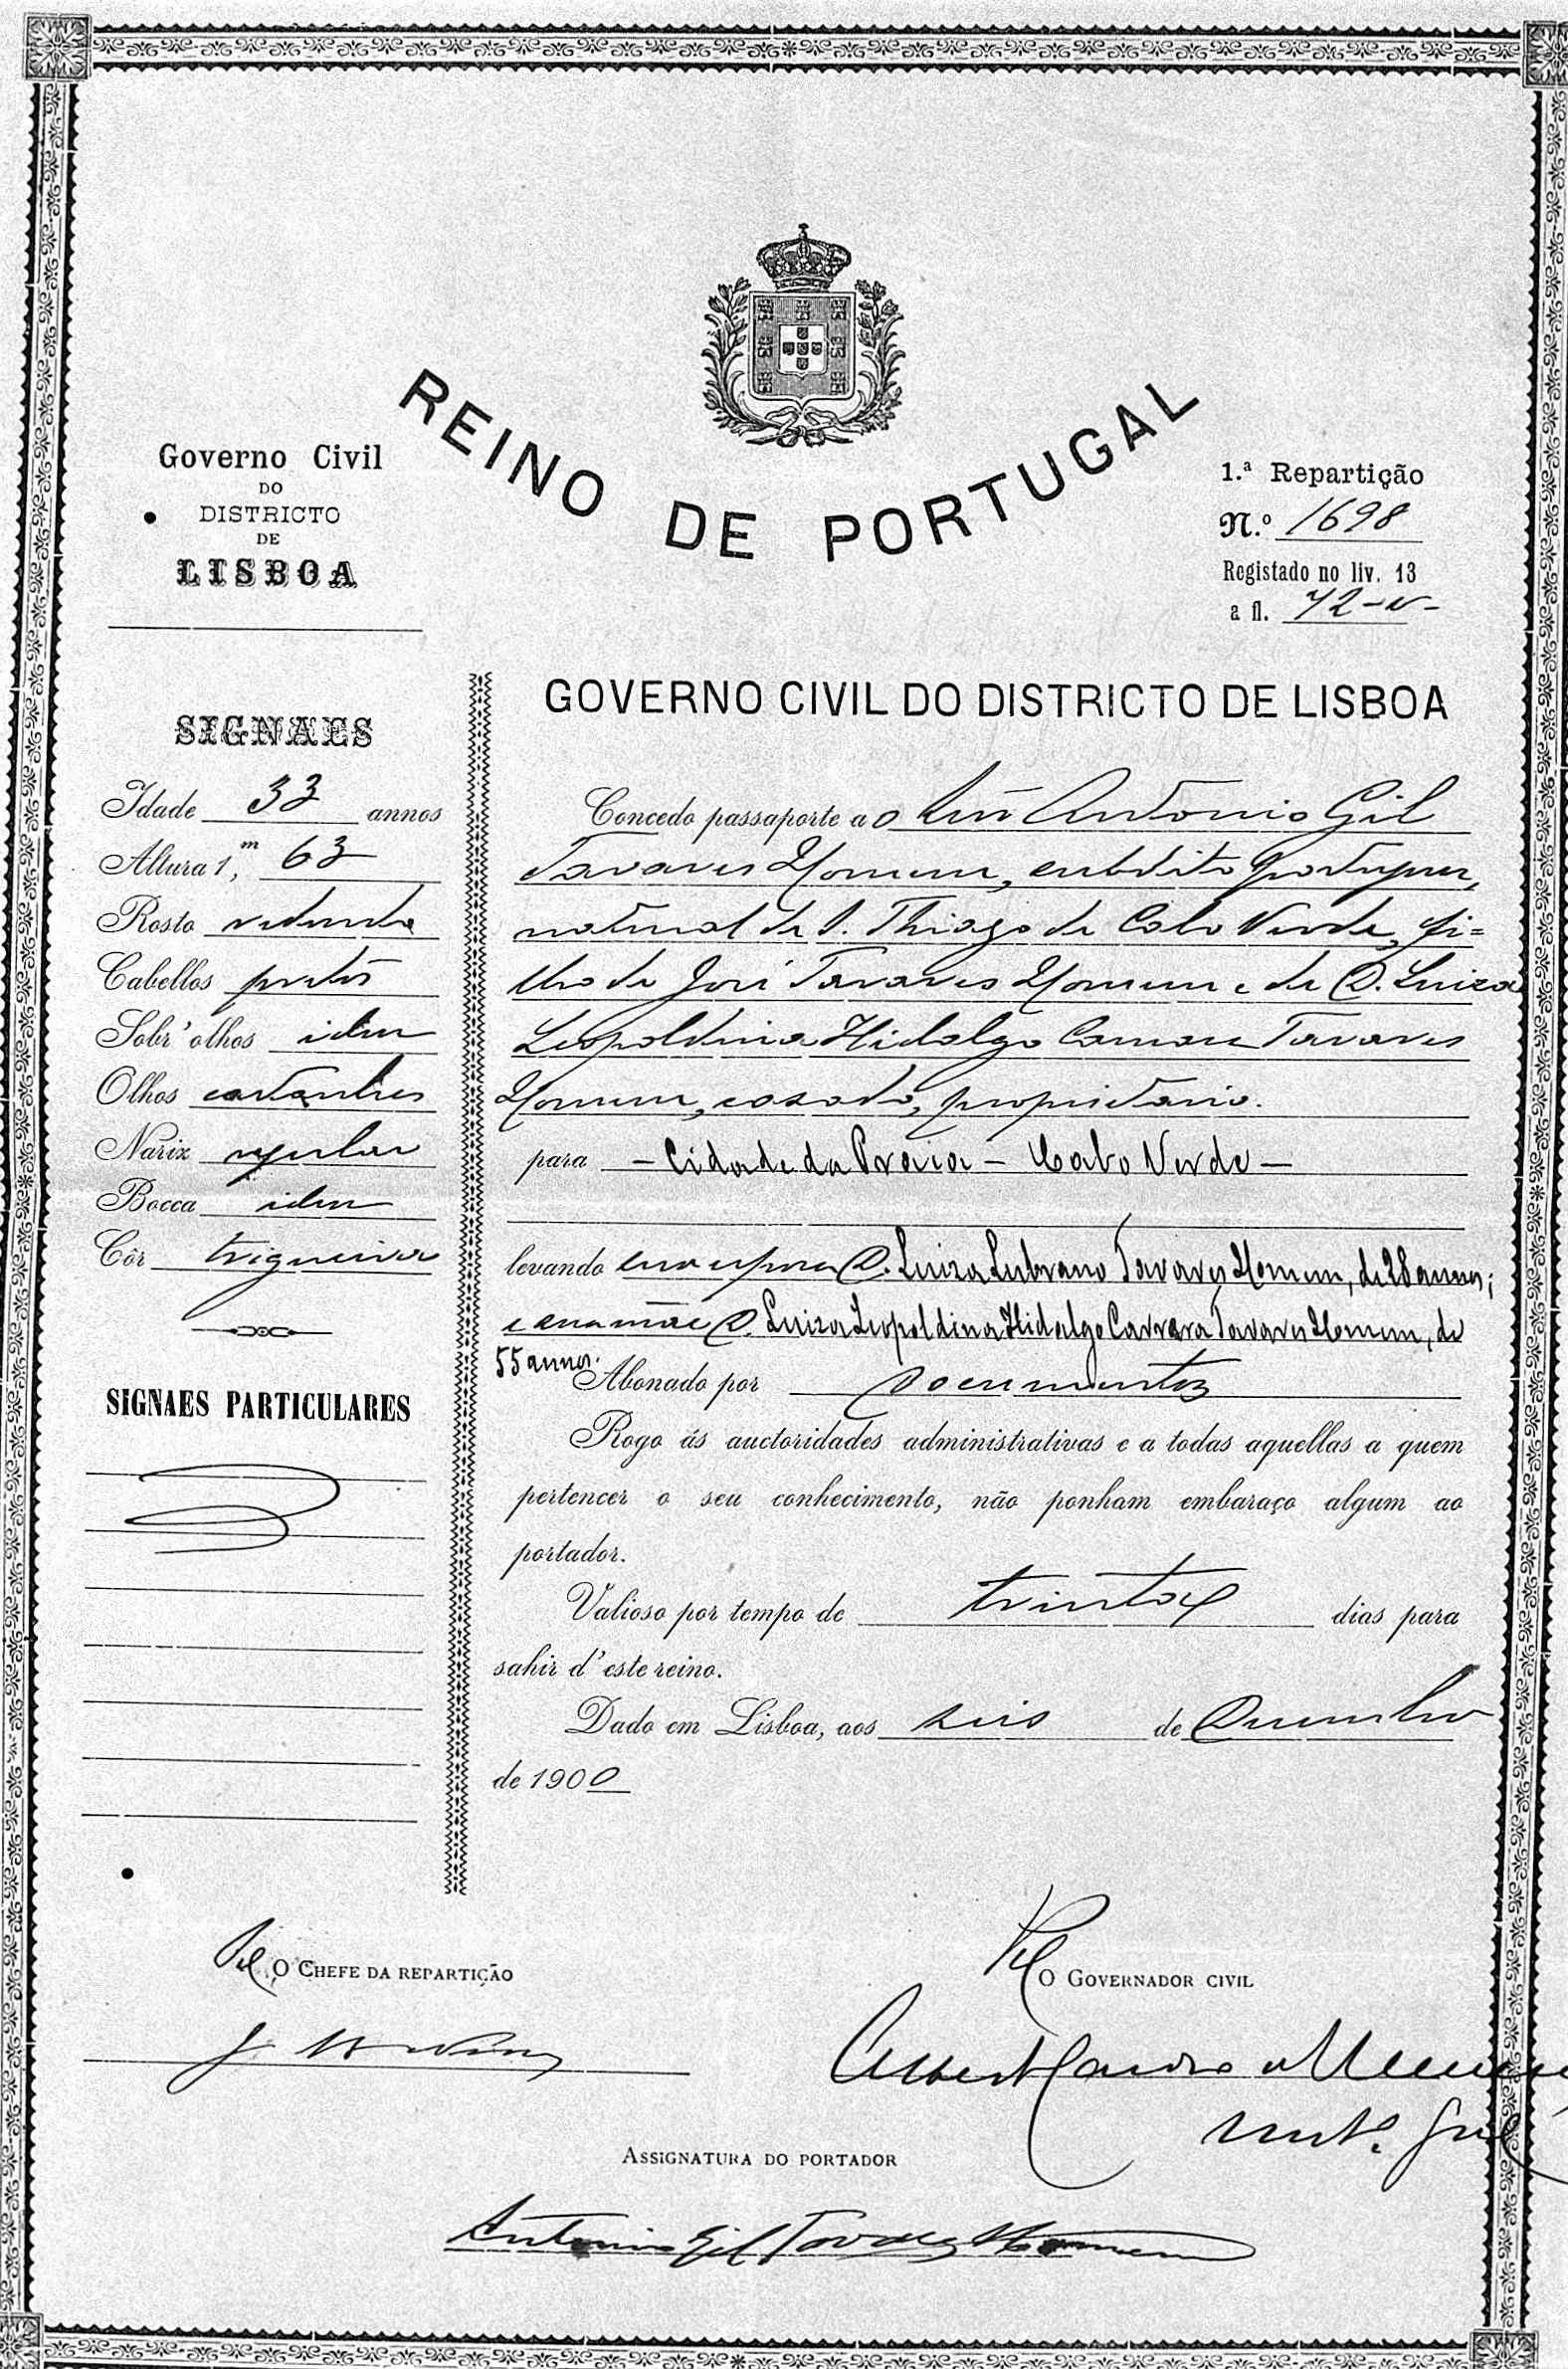 REINO DE PORTUGAL
Governo Civil
DO
DISTRICTO
DE
LISBOA
1.ª Repartição
N.º 1698
Registado no liv. 13
a fl. 72-v-
SIGNAES
Idade 33 annos
Altura 1,ᵐ 63
Rosto redondo
Cabellos pretos
Sobr'olhos idem
Olhos castanhos
Nariz regular
Bocca idem
Côr trigueira
SIGNAES PARTICULARES
GOVERNO CIVIL DO DISTRICTO DE LISBOA
Concedo passaporte ao Antonio Gil
Tavares Homem, subdito portuguez,
natural de S. Thiago de Cabo Verde, fi=
lho de José Tavares Homem e de D. Luiza
Leopoldina Hidalgo Tavares
Homem, casado, proprietario.
para - Cidade da Praia - Cabo Verde -
levando sua esposa D. Luiza Lubrano Tavares Homem, de 28 annos;
e sua mãe D. Luiza Leopoldina Hidalgo Carrara Tavares Homem, de
55 annos.
Abonado por documentos
Rogo ás auctoridades administrativas e a todas aquellas a quem
pertencer o seu conhecimento, não ponham embaraço algum ao
portador.
Valioso por tempo de trinta dias para
sahir d'este reino.
Dado em Lisboa, aos seis de Dezembro
de 1900
Pel O CHEFE DA REPARTIÇÃO
Pel O GOVERNADOR CIVIL
ASSIGNATURA DO PORTADOR
Antonio Gil Tavares Homem